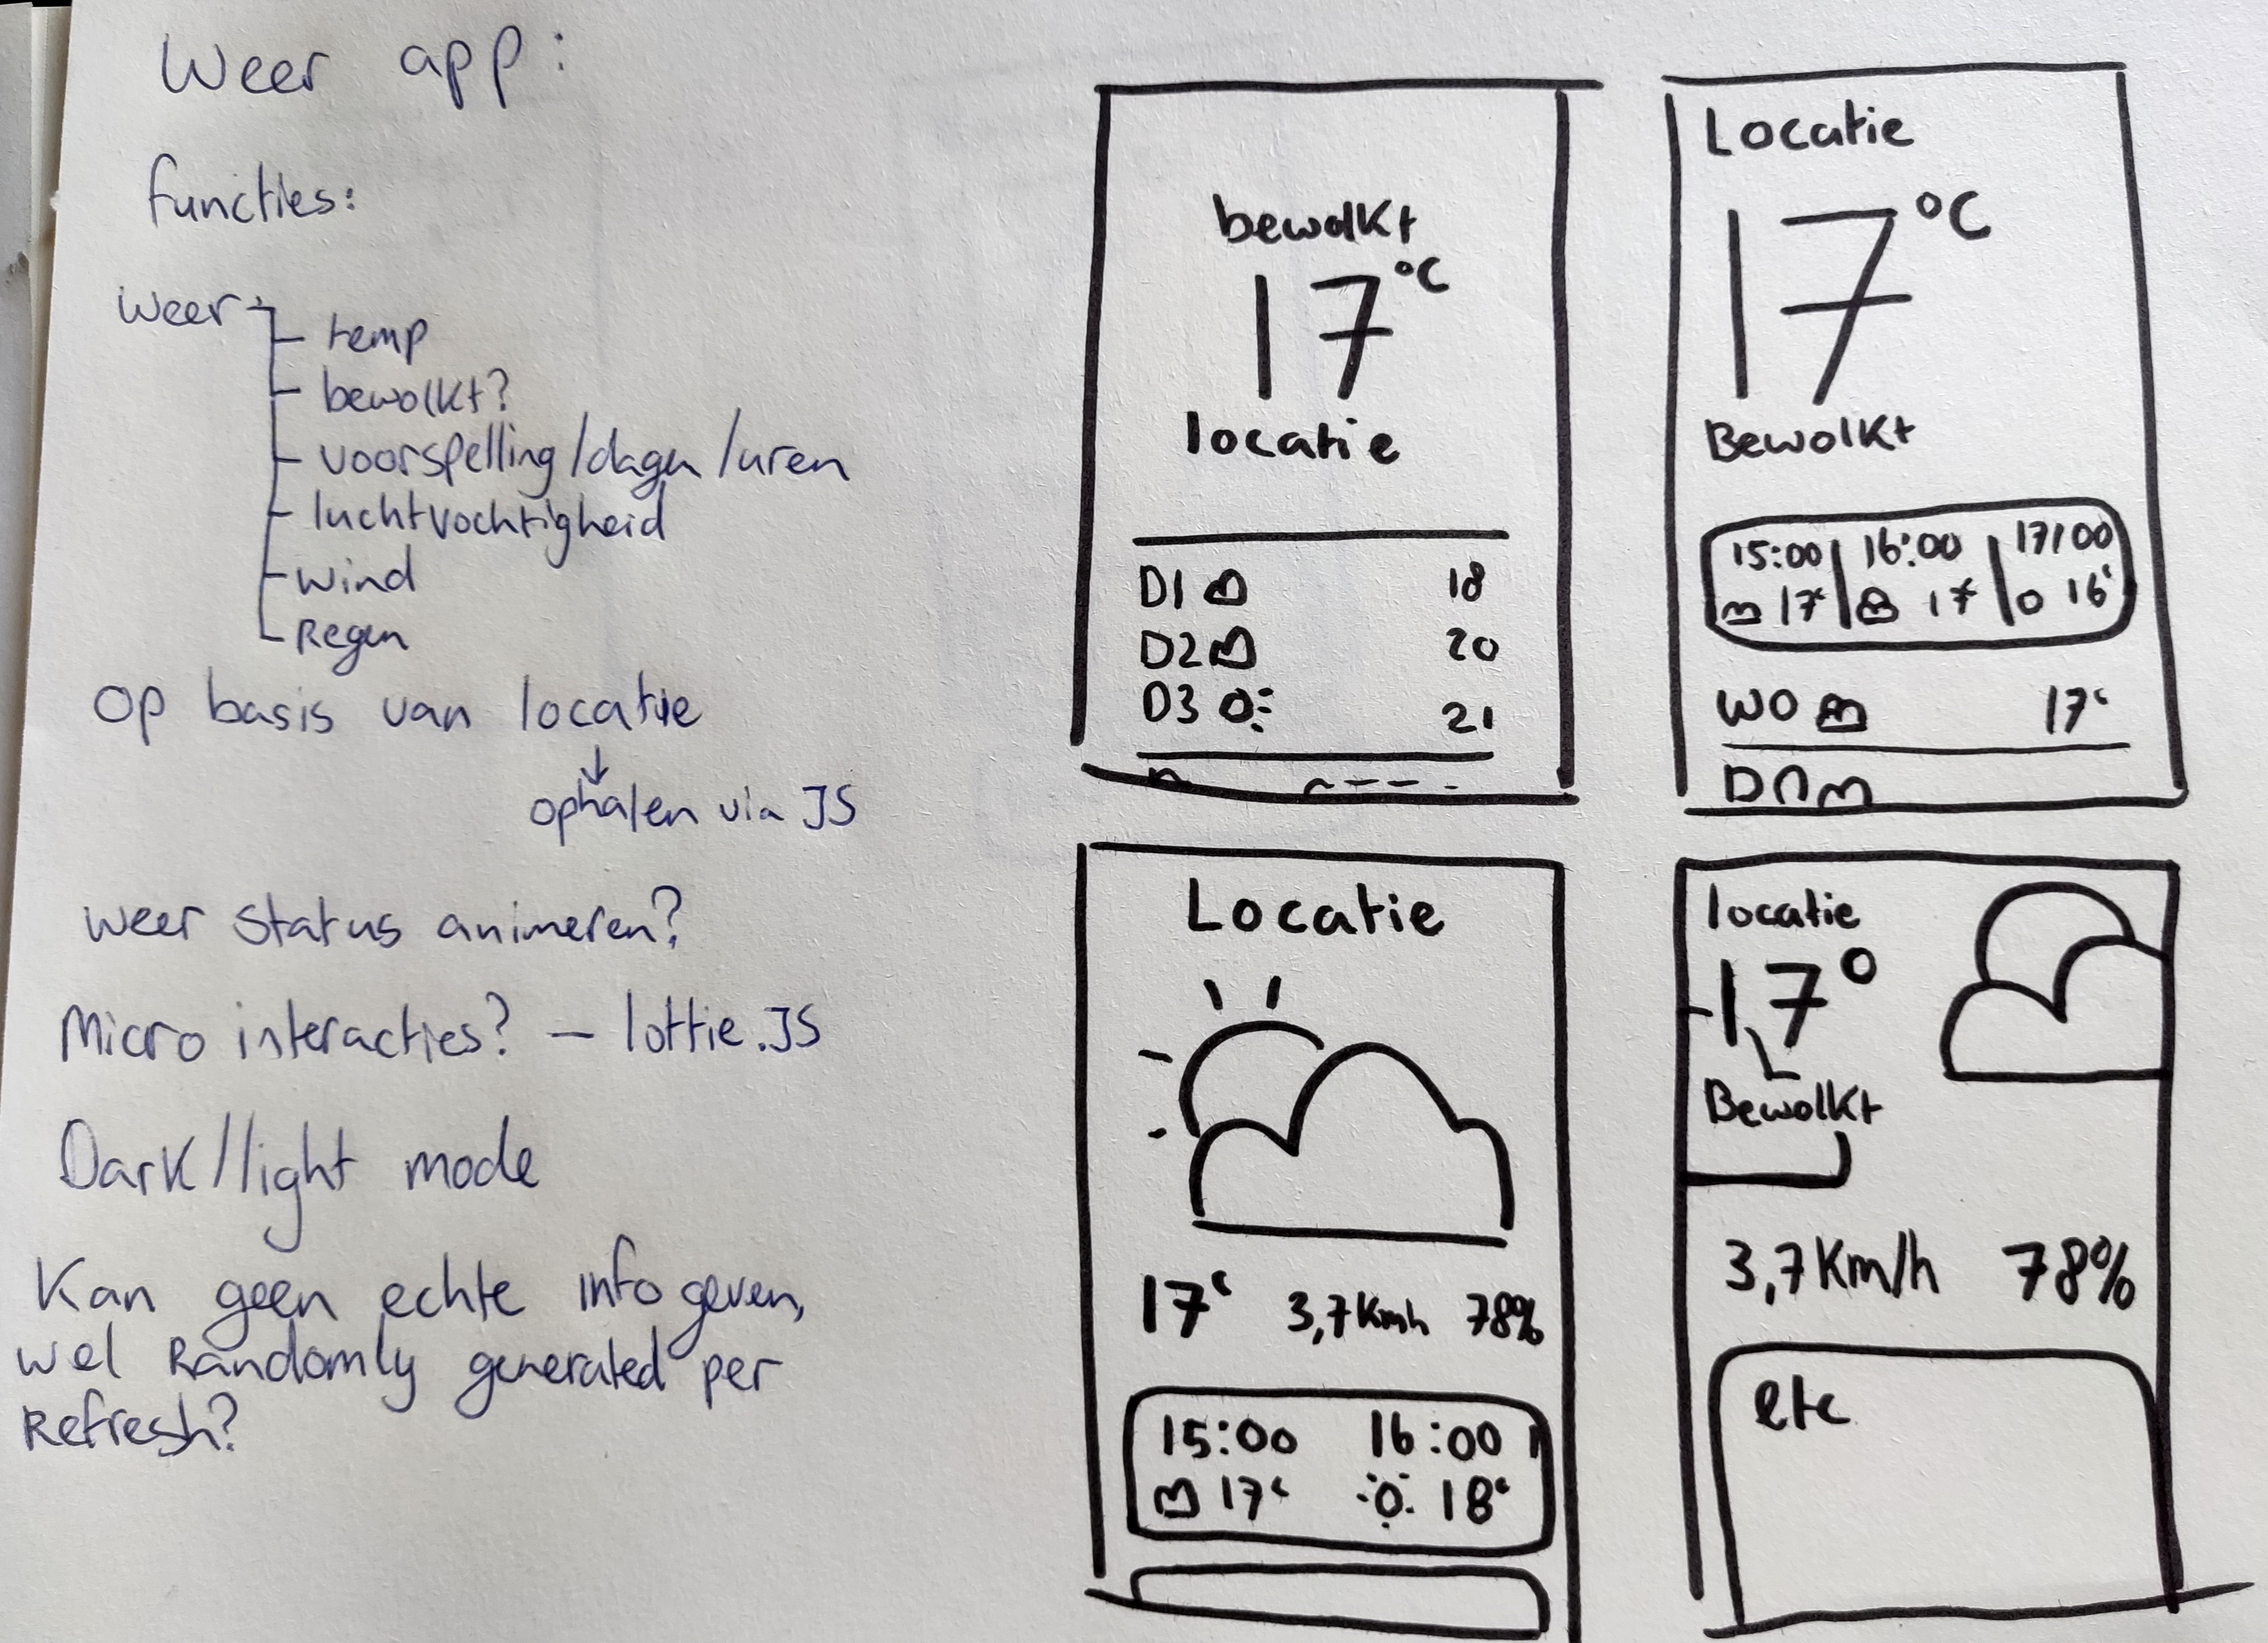 Weer app:
functies:
weer
temp
bewolkt?
voorspelling/dagen/uren
luchtvochtigheid
wind
Regen
op basis van locatie
ophalen via JS
weer status animeren?
Micro interacties? — lottie.JS
Dark/light mode
Kan geen echte info geven,
wel Randomly generated per
Refresh?
bewolkt
17°C
locatie
D1 18
D2 20
D3 21
Locatie
17°C
Bewolkt
15:00 16:00 17:00
17° 17° 16°
WO 17°
DO
Locatie
17° 3,7Kmh 78%
15:00 16:00
17° 18°
locatie
17°
Bewolkt
3,7Km/h 78%
etc